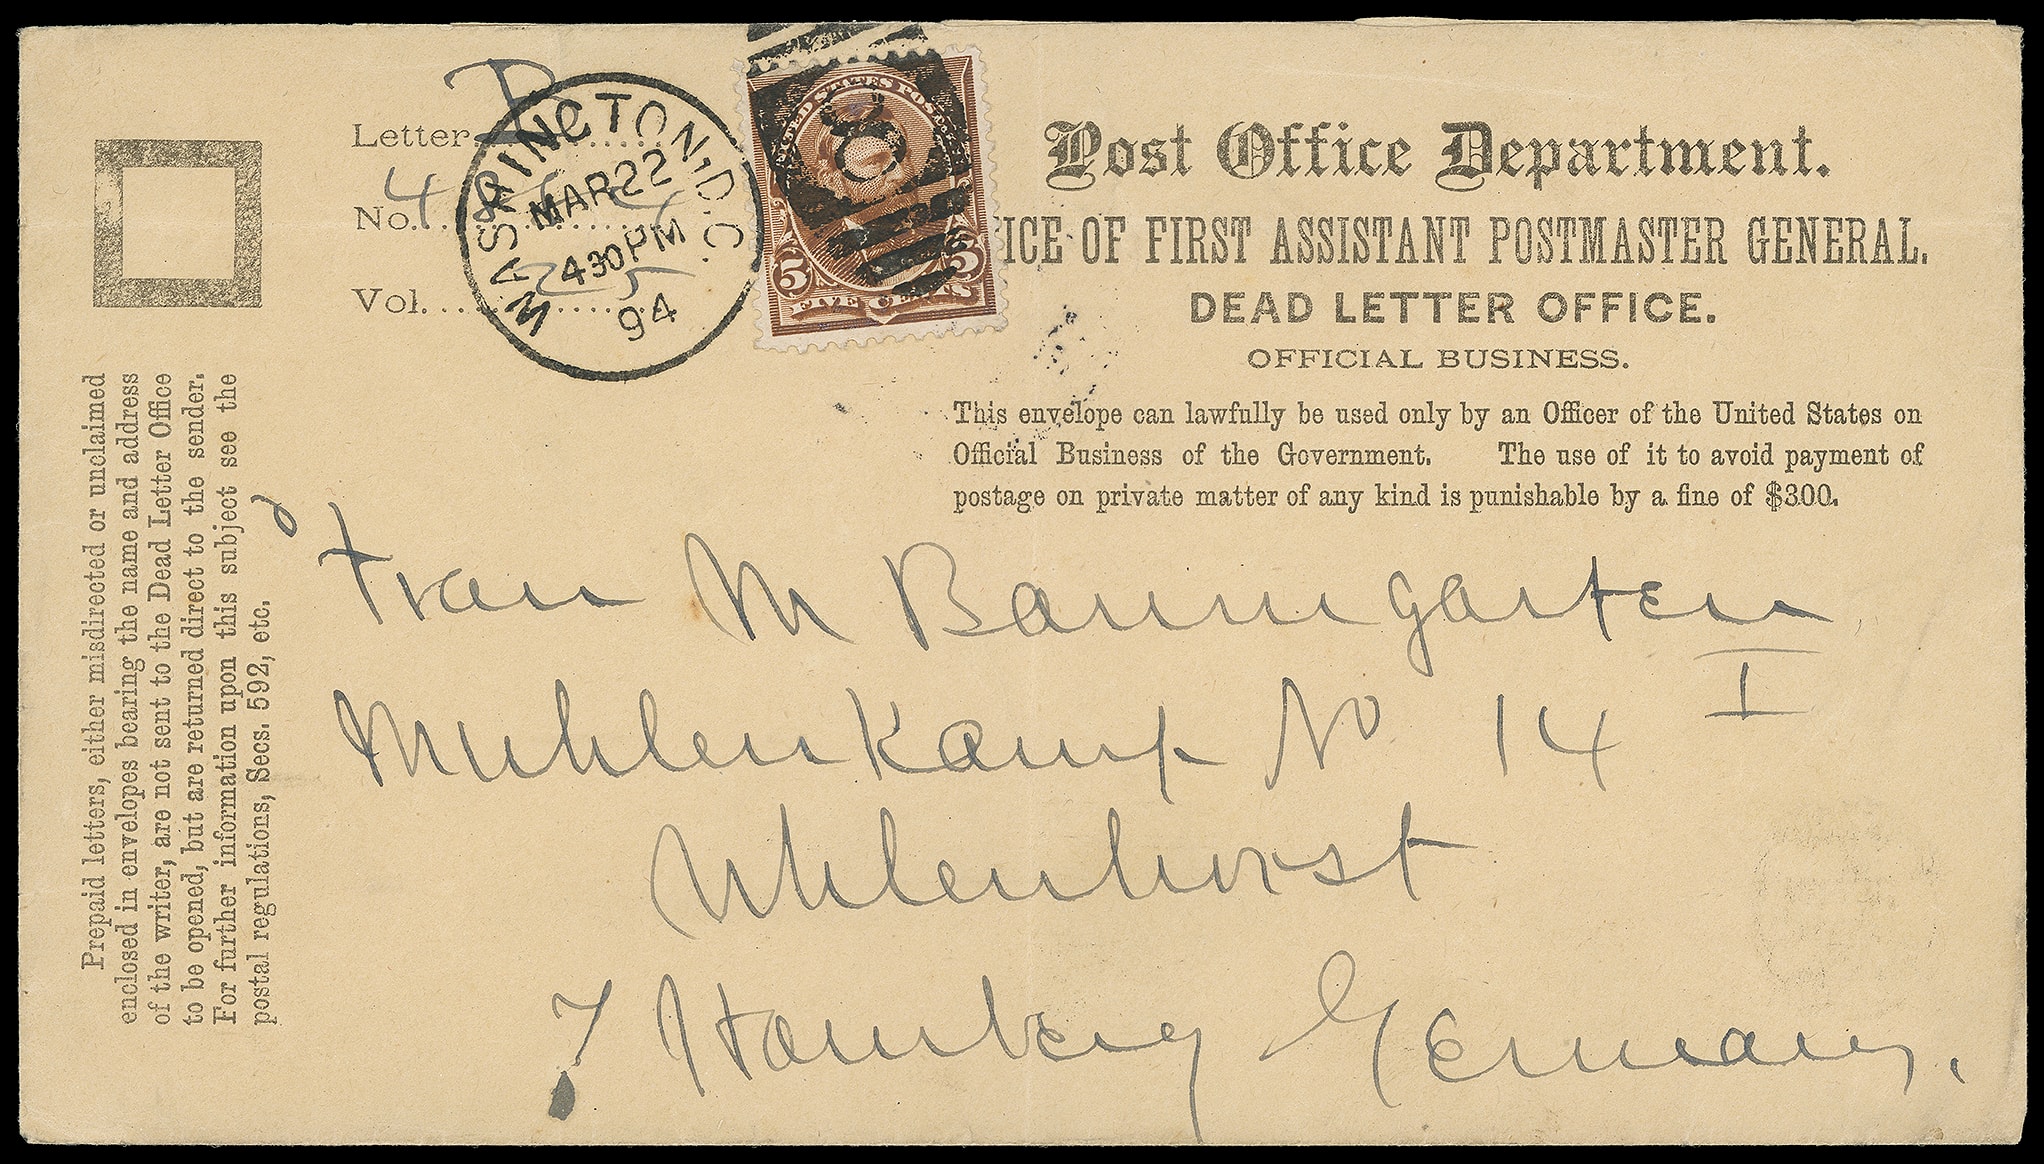 Letter........ D
No........ 4
Vol........ 25
WASHINGTON, D.C.
MAR 22
430 PM
94
UNITED STATES POST
5 5
FIVE CENTS
Post Office Department.
ICE OF FIRST ASSISTANT POSTMASTER GENERAL.
DEAD LETTER OFFICE.
OFFICIAL BUSINESS.
This envelope can lawfully be used only by an Officer of the United States on
Official Business of the Government. The use of it to avoid payment of
postage on private matter of any kind is punishable by a fine of $300.
Prepaid letters, either misdirected or unclaimed
enclosed in envelopes bearing the name and address
of the writer, are not sent to the Dead Letter Office
to be opened, but are returned direct to the sender.
For further information upon this subject see the
postal regulations, Secs. 592, etc.
Frau M Baumgarten
Muhlenkamp No 14 I
Uhlenhorst
7 Hamburg Germany.